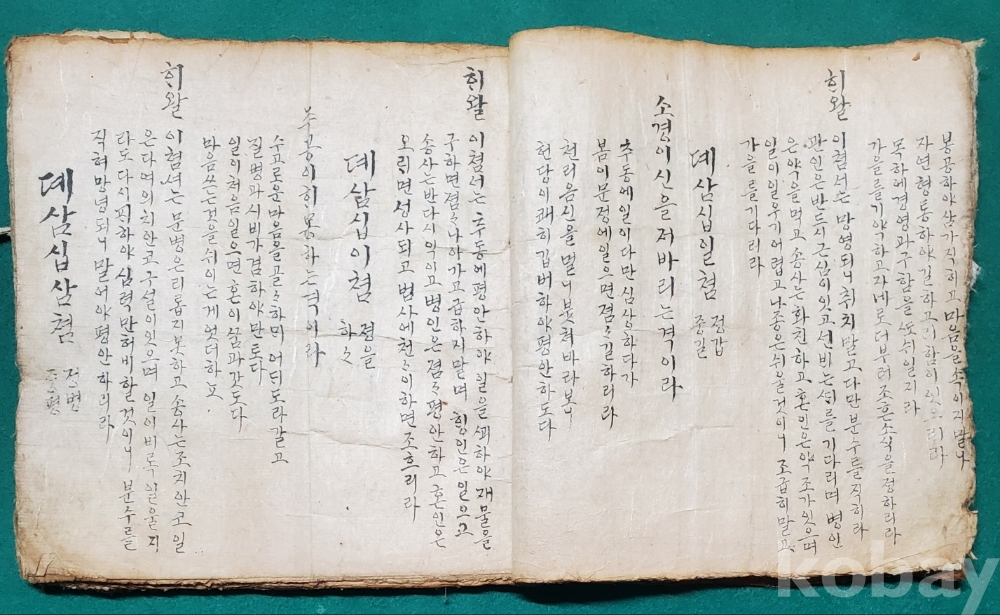 봉공하야삼가직히고마음을속이지말나
자연형통하야길하고리함이잇스리라
목하에경영과구함을쏘쉬일지라
가을를기약하고자네로더부러조흔소식을졍하리라
희왈 이쳠션는망영되니취치말고다만분수를직히라
관인은반드시근심이잇고션비는쌔를기다리며병인
은약을먹고송사는화친하고혼인은약조가잇으며
일이일우기어렵고나종은쉬울것이니 조급히말고
가을를기다리라
뎨삼십일쳠 졍갑
즁길
소경이신을저바리는격이라
추동에일이다만심상하다가
봄이문졍에일으면졈〻길하리라
쳔리음신을멀니붓쳐바라보니
헌당이쾌히깁버하야평안하도다
희왈 이쳠션는추동에평안하야일을쐬하야재물을
구하면졈〻나아가고급하지말며 행인은일으고
송사는반다시익이고병인은졈〻평안하고혼인은
오릭면셩사되고범사에쳔〻이하면조흐리라
뎨삼십이쳠 졍을
하〻
주공이히몽하는격이라
수고로운마음을골〻하미어듸도라갈고
질병과시비가겸하야만토다
일이쳐음일으면혼이꿈과갓도다
마음쓰는것을쉬이는게엇더하뇨
희왈 이쳠션는문병은리롭지못하고송사는조치안코일
은다며의치한코구셜이잇으며 일이비록일울지
라도다시쇠하야심력만허비할것이니 분수를
직혀망녕되니말어야평안하리라
뎨삼십삼쳠 졍병
즁평
kobay